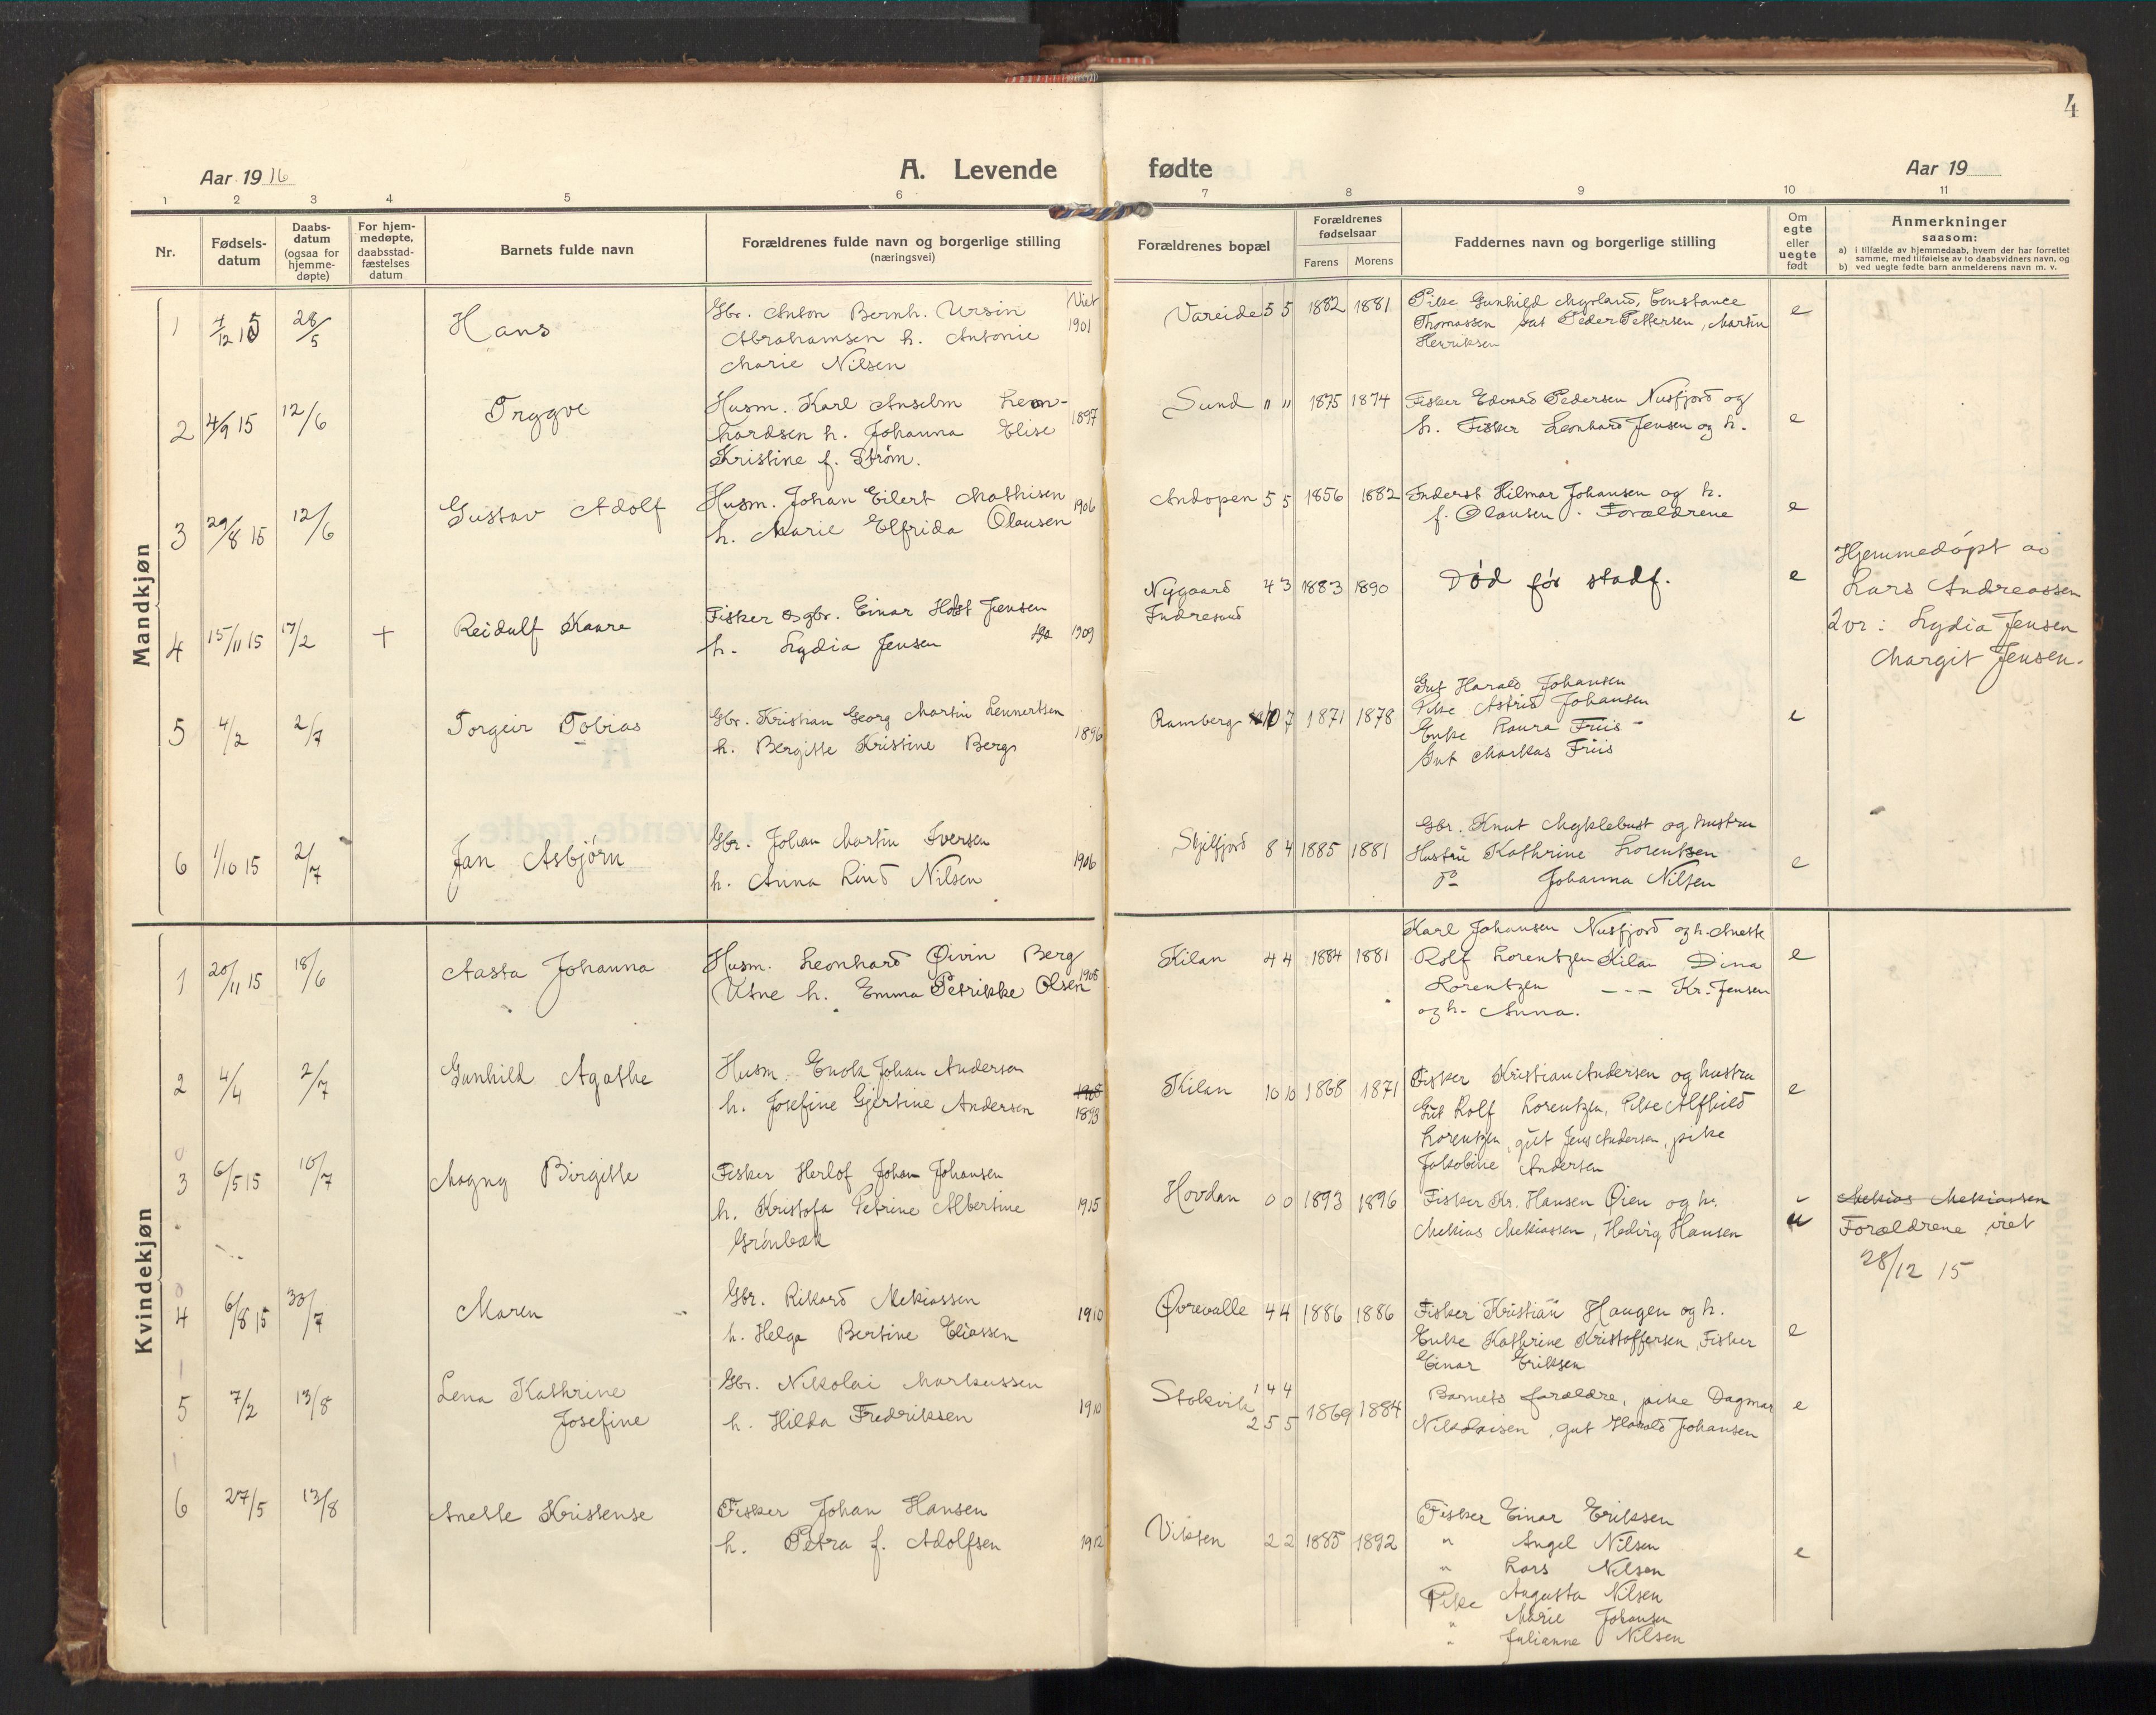 4
Aar 1916
A. Levende fødte
Aar 19
1 2 3 4 5 6 7 8 9 10 11
Nr.
Fødsels-
datum
Daabs-
datum
(ogsaa for
hjemme-
døpte)
For hjem-
medøpte,
daabsstad-
fæstelses
datum
Barnets fulde navn
Forældrenes fulde navn og borgerlige stilling
(næringsvei)
Forældrenes bopæl
Forældrenes
fødselsaar
Farens Morens
Faddernes navn og borgerlige stilling
Om
egte
eller
uegte
født
Anmerkninger
saasom:
a) i tilfælde av hjemmedaab, hvem der har forrettet
samme, med tilføielse av to daabsvidners navn, og
b) ved uegte fødte barn anmelderens navn m. v.
Mandkjøn
Viet
1 4/12 15 28/5 Hans
Gbr. Anton Bernh. Ursin 1901
Abrahamsen h. Antonie
Marie Nilsen
Vareide 5 5 1882 1881
Pike Gunhild Myrland, Constance
Thomassen gut Peder Pettersen, Martin
Henriksen
e
2 4/9 15 12/6 Trygve
Husm. Karl Anselm Leon-
hardsen h. Johanna Elise 1897
Kristine f. Strøm.
Sund " " 1875 1874
Fisker Edvard Pedersen Nusfjord og
h. Fisker Leonhard Jensen og h.
e
3 29/8 15 12/6 Gustav Adolf
Husm. Johan Eilert Mathisen 1906
h. Marie Elfrida Olausen
Andopen 5 5 1856 1882
Inderst Hilmar Johansen og h.
f. Olausen. Forældrene
e
4 15/11 15 17/2 + Reidulf Kaare
Fisker og gbr. Einar Holst Jensen
h. Lydia Jensen 1909
Nygaard 4 3 1883 1890
Indresund
Død før stadf.
e
Hjemmedøpt av
Lars Andreassen
2 vr: Lydia Jensen
Margit Jensen.
5 4/2 2/7 Torgeir Tobias
Gbr. Kristian Georg Martin Lennertsen
h. Bergitte Kristine Berg 1896
Ramberg 10 7 1871 1878
Gut Harald Johansen
Pike Astrid Johansen
Enke Laura Friis
Gut Markus Friis
e
6 1/10 15 2/7 Jan Asbjørn
Gbr. Johan Martin Iversen
h. Anna Lind Nilsen 1906
Skjelfjord 8 4 1885 1881
Gbr. Knut Myklebust og hustru
Hustru Kathrine Lorentsen
do Johanna Nilsen
e
Kvindekjøn
1 20/11 15 18/6 Aasta Johanna
Husm. Leonhard Øivin Berg
Utne h. Emma Petrikke Olsen
Kilan 4 4 1884 1881
Karl Johansen Nusfjord og h. Anette
Rolf Lorentzen Kilan Dina
Lorentzen --- Kr. Jensen
og h. Anna.
e
2 4/4 2/7 Gunhild Agathe
Husm. Enok Johan Andersen
h. Josefine Gjertine Andersen 1893
Kilan 10 10 1868 1871
Fisker Kristian Andersen og hustru
Gut Rolf Lorentzen, Pike Alfhild
Lorentzen, gut Jens Andersen, pike
Jakobine Andersen
e
3 6/5 15 16/7 Magny Birgitte
Fisker Herlof Johan Johansen
h. Kristofa Petrine Albertine 1915
Grønbæk
Hovdan 0 0 1893 1896
Fisker Kr. Hansen Øien og h.
Mekias Mekiassen, Hedvig Hansen
u
Mekias Mekiassen
Forældrene viet
28/12 15
4 6/8 15 30/7 Maren
Gbr. Rikard Mekiassen 1910
h. Helga Bertine Eliassen
Øvrevalle 4 4 1886 1886
Fisker Kristian Haugen og h.
Enke Kathrine Kristoffersen, Fisker
Einar Eriksen
e
5 7/2 13/8 Lena Kathrine
Josefine
Gbr. Nikolai Markussen
h. Hilda Fredriksen 1910
Stokvik 1 4 4
2 5 5 1869 1884
Barnets forældre, pike Dagmar
Nikolaisen, gut Harald Johansen
e
6 27/5 13/8 Anette Kristense
Fisker Johan Hansen
h. Petra f. Adolfsen 1912
Vikten 2 2 1885 1892
Fisker Einar Eriksen
" Angel Nilsen
" Lars Nilsen
Pike Augusta Nilsen
" Marie Johansen
" Julianne Nilsen
e